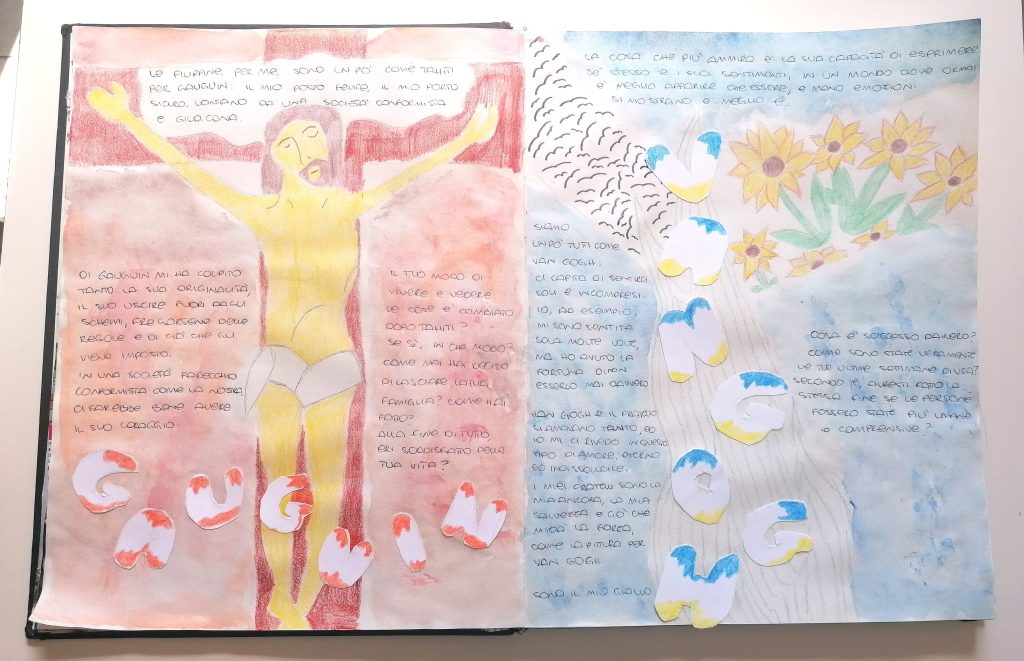 LE FILIPPINE, PER ME, SONO UN PO' COME TAHITI
PER GAUGUIN: IL MIO POSTO FELICE, IL MIO PORTO
SICURO, LONTANO DA UNA SOCIETÀ CONFORMISTA
E GIUDICONA.
DI GAUGUIN MI HA COLPITO
TANTO LA SUA ORIGINALITÀ,
IL SUO USCIRE FUORI DAGLI
SCHEMI, FREGARSENE DELLE
REGOLE E DI CIÒ CHE GLI
VIENE IMPOSTO.
IN UNA SOCIETÀ PARECCHIO
CONFORMISTA COME LA NOSTRA,
CI FAREBBE BENE AVERE
IL SUO CORAGGIO.
IL TUO MODO DI
VIVERE E VEDERE
LE COSE E' CAMBIATO
DOPO TAHITI?
SE SÌ, IN CHE MODO?
COME MAI HAI DECISO
DI LASCIARE LA TUA
FAMIGLIA? COME HAI
FATTO?
ALLA FINE DI TUTTO
ERI SODDISFATTO DELLA
TUA VITA?
GAUGUIN
LA COSA CHE PIU' AMMIRO E' LA SUA CAPACITÀ DI ESPRIMERE
SE' STESSO E I SUOI SENTIMENTI, IN UN MONDO DOVE ORMAI
E' MEGLIO APPARIRE CHE ESSERE, E MENO EMOZIONI
SI MOSTRANO E MEGLIO E'.
SIAMO
UN PO' TUTTI COME
VAN GOGH:
CI CAPITA DI SENTIRCI
SOLI E INCOMPRESI.
IO, AD ESEMPIO,
MI SONO SENTITA
SOLA MOLTE VOLTE,
MA HO AVUTO LA
FORTUNA DI NON
ESSERLO MAI DAVVERO.
VAN GOGH E IL FRATELLO
SI AMAVANO TANTO, ED
IO MI CI RIVEDO IN QUESTO
TIPO DI AMORE, ETERNO
ED INDISSOLUBILE.
I MIEI FRATELLI SONO LA
MIA ANCORA, LA MIA
SALVEZZA E CIÒ CHE
MI DÀ LA FORZA,
COME LA PITTURA PER
VAN GOGH.
SONO IL MIO GIALLO.
VAN GOGH
COSA E' SUCCESSO DAVVERO?
COME SONO STATE VERAMENTE
LE TUE ULTIME SETTIMANE DI VITA?
SECONDO TE, AVRESTI FATTO LA
STESSA FINE SE LE PERSONE
FOSSERO STATE PIU' UMANE
E COMPRENSIVE?